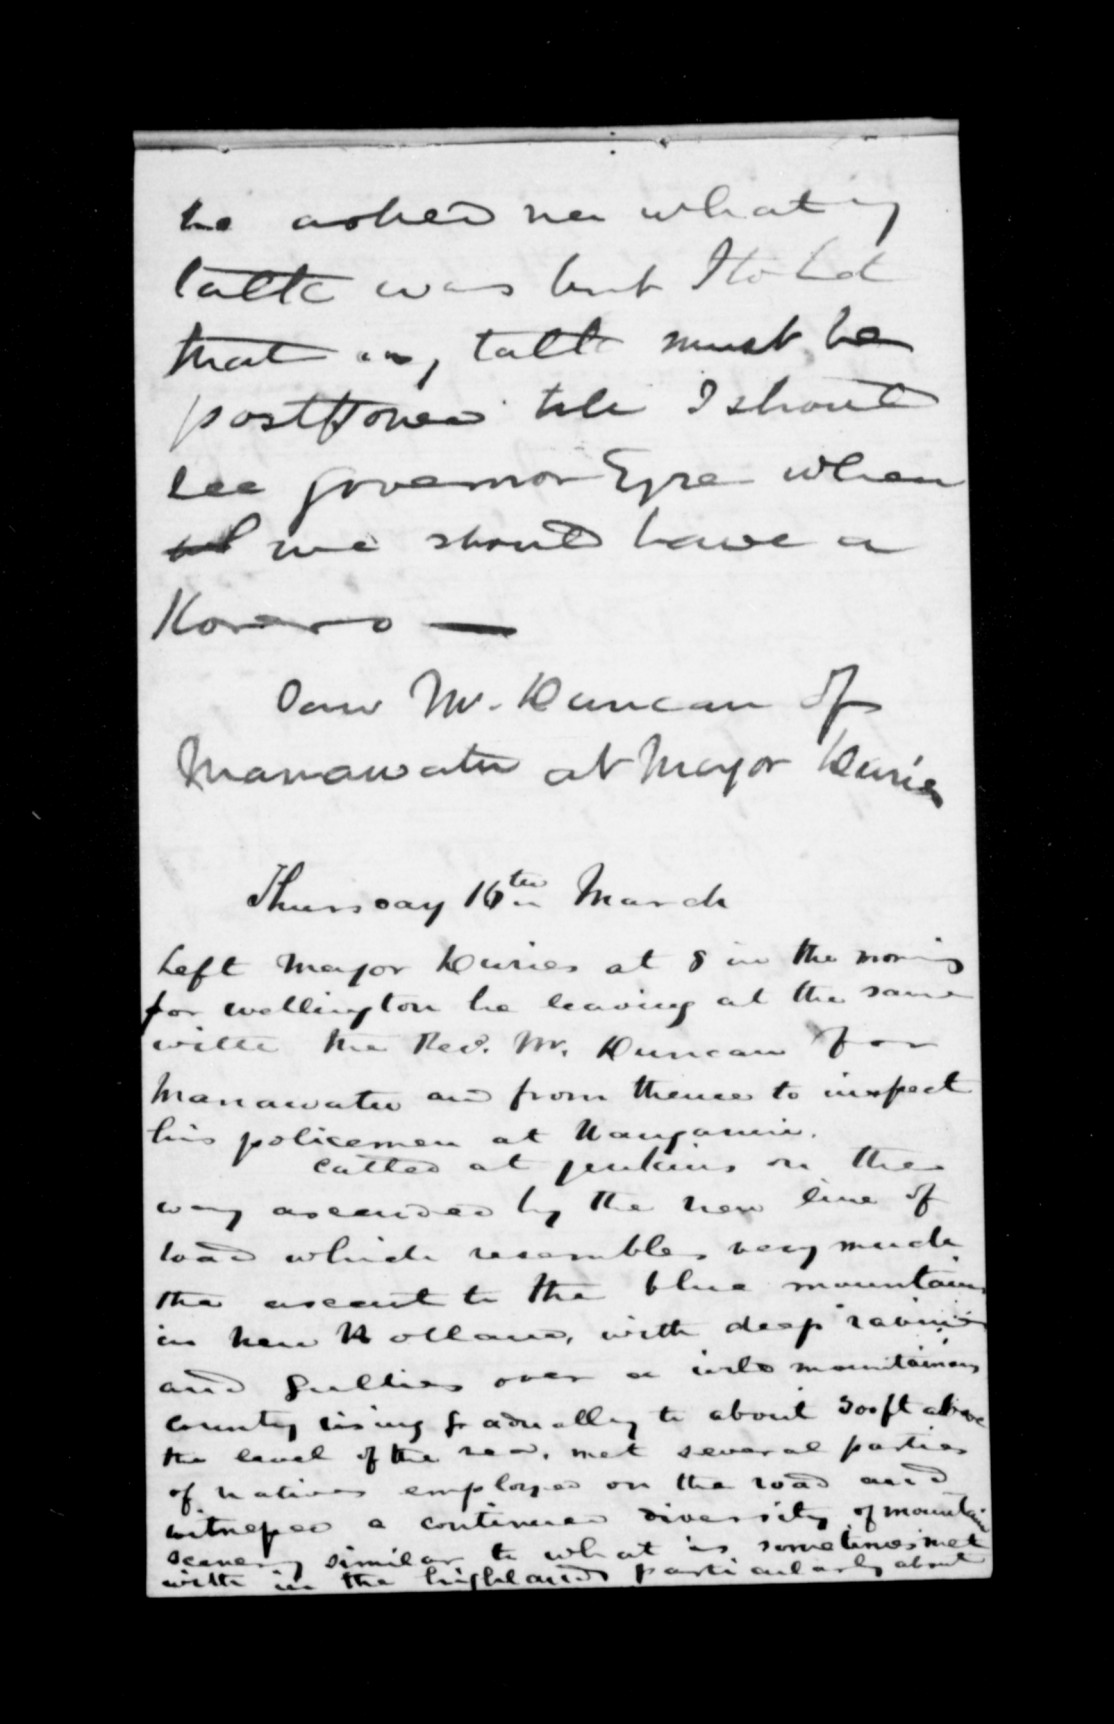 he asked me what my
talk was but I told
that my talk must be
postponed till I should
see Governor Eyre when
we should have a
Korero —
Saw Mr. Duncan of
Manawatu at Major Duries
Thursday 16th March
Left Major Duries at 8 in the morning
for wellington he leaving at the same
with the Revd. Mr. Duncan for
Manawatu and from thence to inspect
his policemen at Wanganui.
Called at Jenkins on the
way ascended by the new line of
road which resembles very much
the ascent to the blue mountains
in New Holland, with deep ravines
and gullies over a wild mountainous
country rising gradually to about 300ft above
the level of the sea, met several parties
of natives employed on the road and
witnessed a continued diversity of mountain
scenery similar to what is sometimes met
with in the highlands particularly about